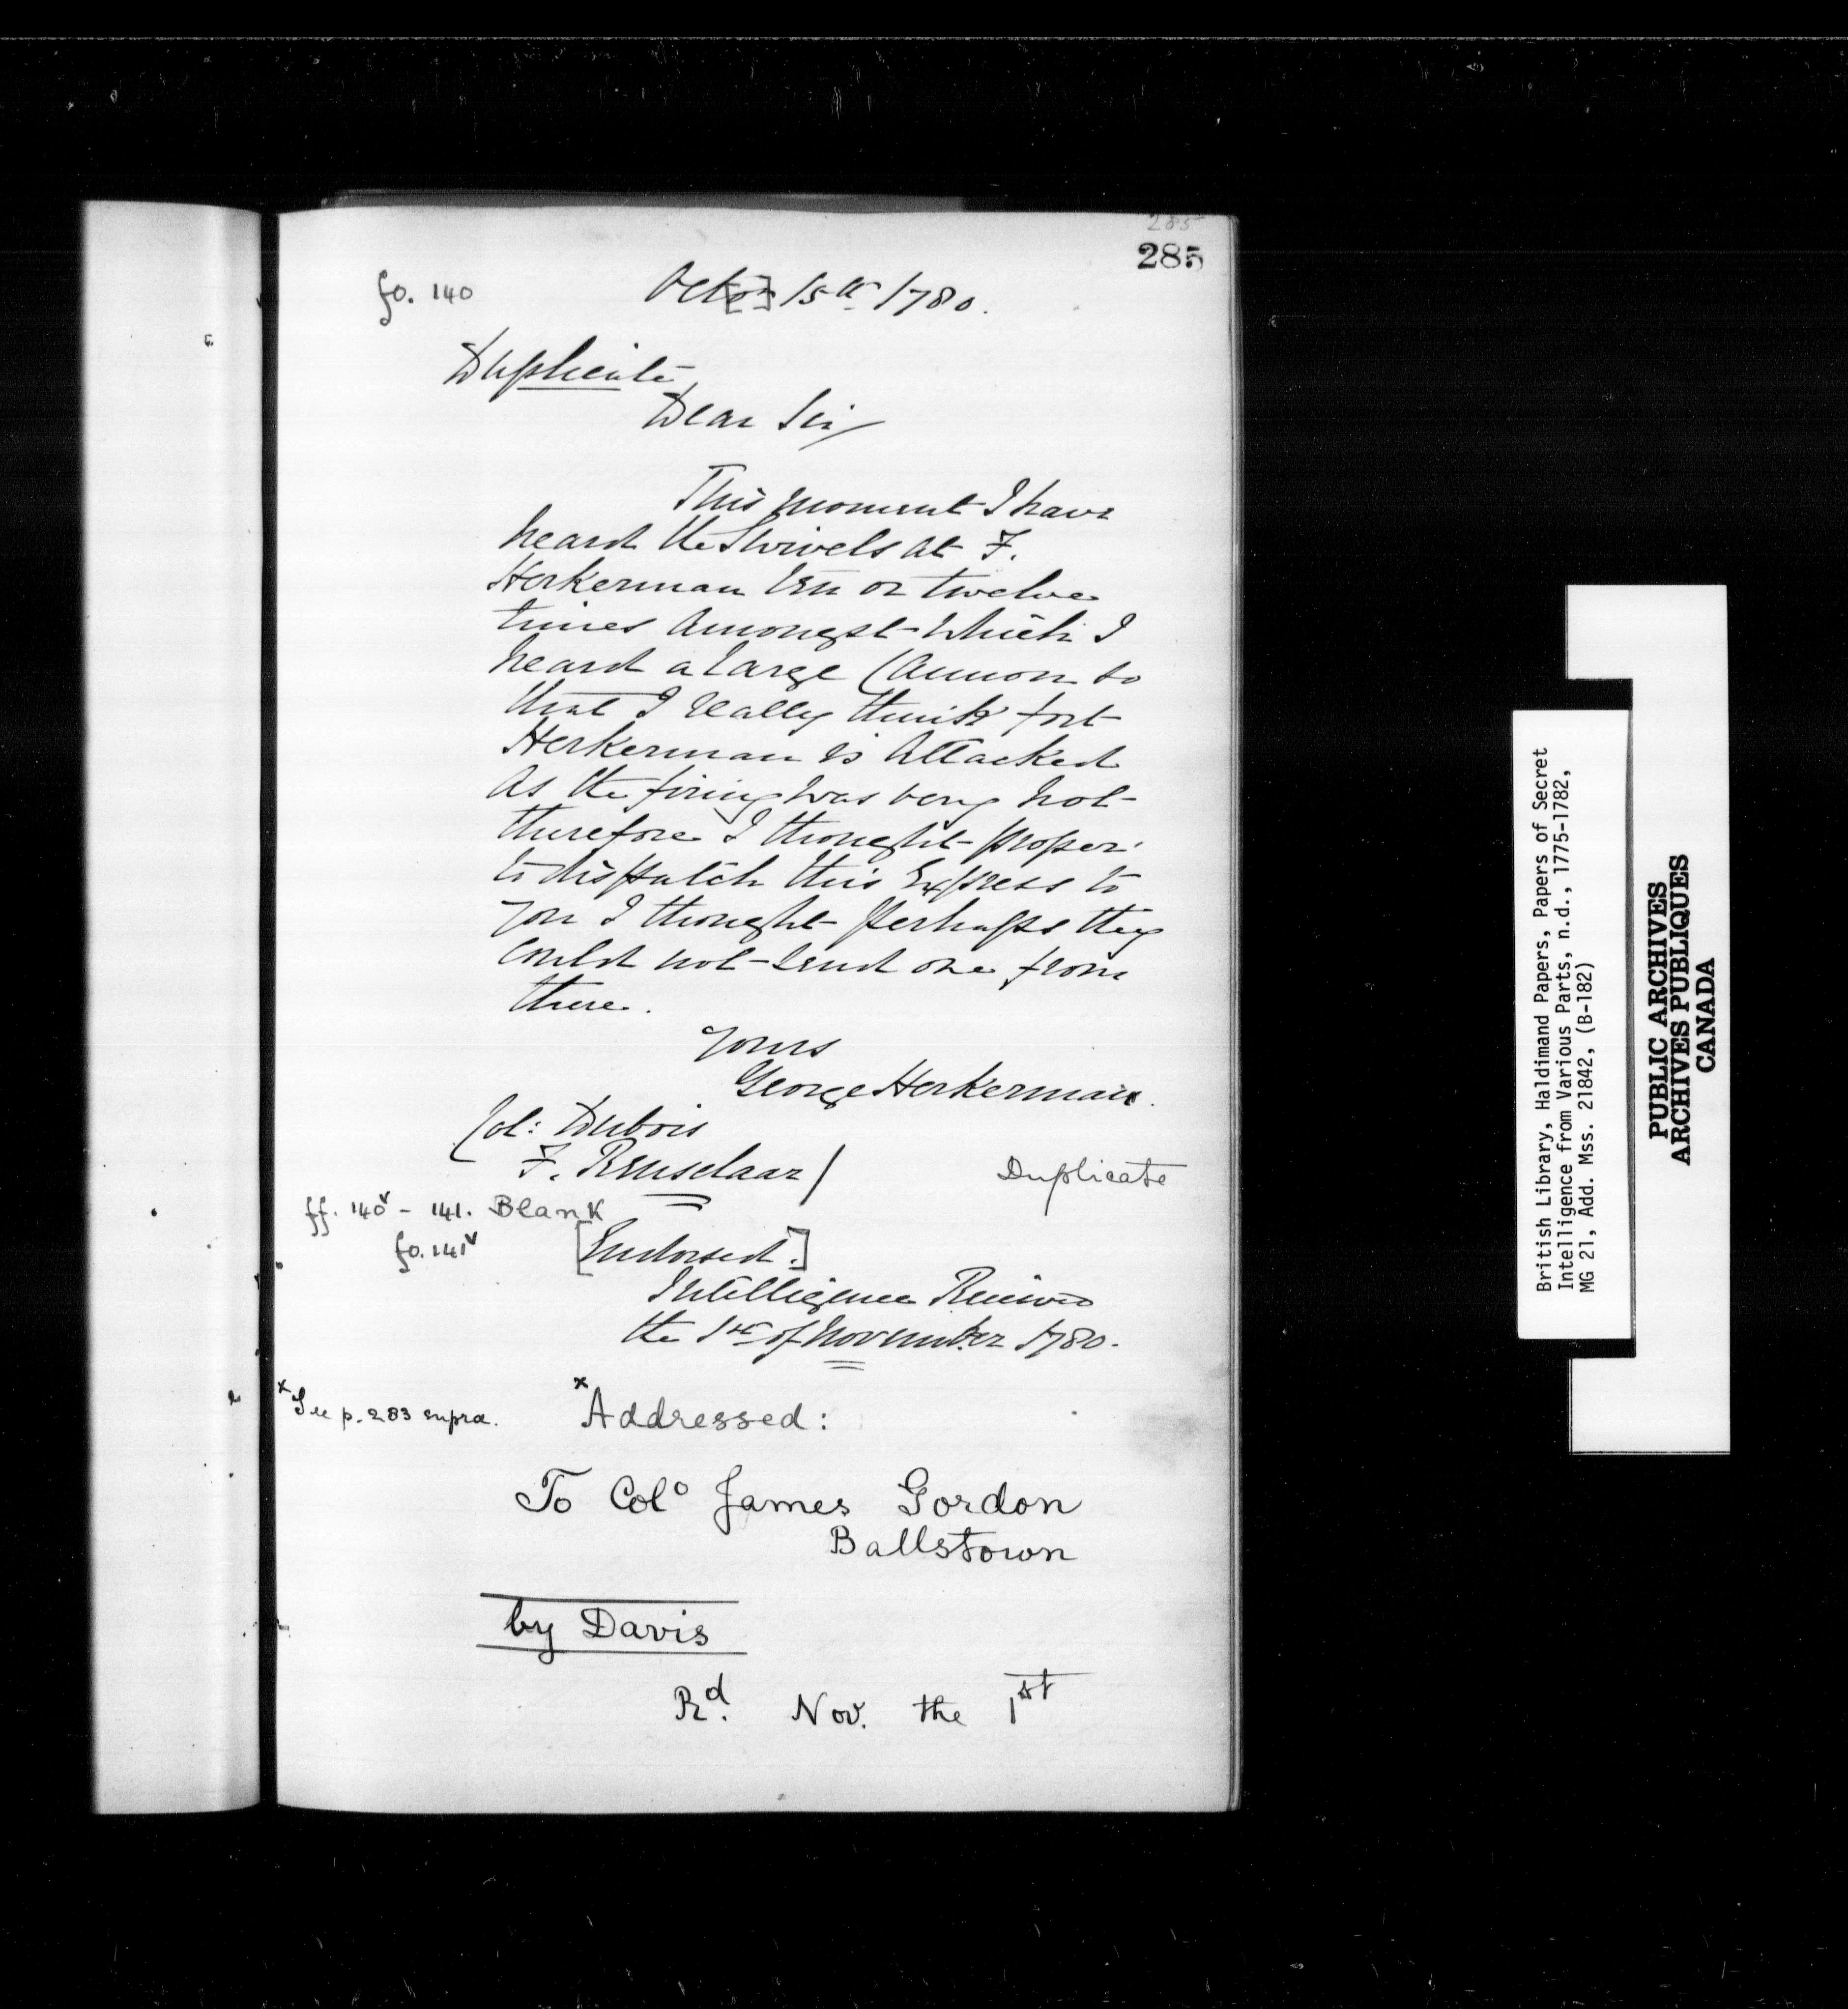 285
285
fo. 140
Octo[r] 15th 1780.
Duplicate
Dear Sir/
This moment I have
heard the Swivels at F.
Herkerman ten or twelve
times Amongst which I
heard a large Cannon so
that I really think fort
Herkerman is Attacked
As the firing was very hot
therefore I thought proper
to dispatch this Express to
you I thought perhaps they
could not send one from
there.
Yours
George Herkerman.
Col: Dubois
F. Renselaar/
Duplicate
ff. 140v - 141. Blank
fo. 141v
[Endorsed.]
Intelligence Received
the 1st of November 1780.
x See p. 283 supra.
x Addressed:
To Colo James Gordon
Ballstown
by Davis
Rd. Nov. the 1st
British Library, Haldimand Papers, Papers of Secret
Intelligence from Various Parts, n.d., 1775-1782,
MG 21, Add. Mss. 21842, (B-182)
PUBLIC ARCHIVES
ARCHIVES PUBLIQUES
CANADA